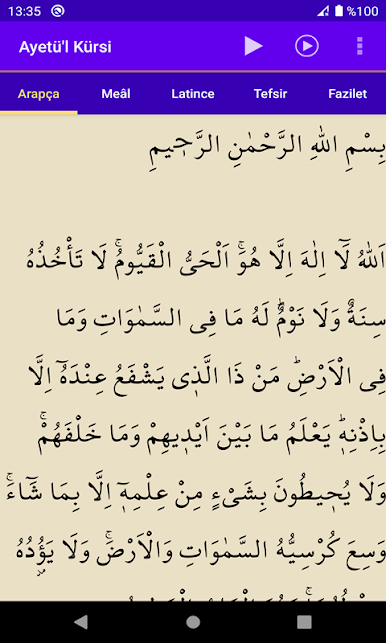 13:35
%100
Ayetü'l Kürsi
Arapça Meâl Latince Tefsir Fazilet
بِسْمِ اللهِ الرَّحْمٰنِ الرَّحِيمِ
اَللهُ لَٓا اِلٰهَ اِلَّا هُوَۚ اَلْحَيُّ الْقَيُّومُۚ لَا تَأْخُذُهُ
سِنَةٌ وَلَا نَوْمٌۜ لَهُ مَا فِى السَّمٰوَاتِ وَمَا
فِى الْاَرْضِۜ مَنْ ذَا الَّذِى يَشْفَعُ عِنْدَهُٓ اِلَّا
بِاِذْنِهِۜ يَعْلَمُ مَا بَيْنَ اَيْدِيهِمْ وَمَا خَلْفَهُمْۚ
وَلَا يُحِيطُونَ بِشَىْءٍ مِنْ عِلْمِهِٓ اِلَّا بِمَا شَٓاءَۚ
وَسِعَ كُرْسِيُّهُ السَّمٰوَاتِ وَالْاَرْضَۚ وَلَا يَؤُدُهُ